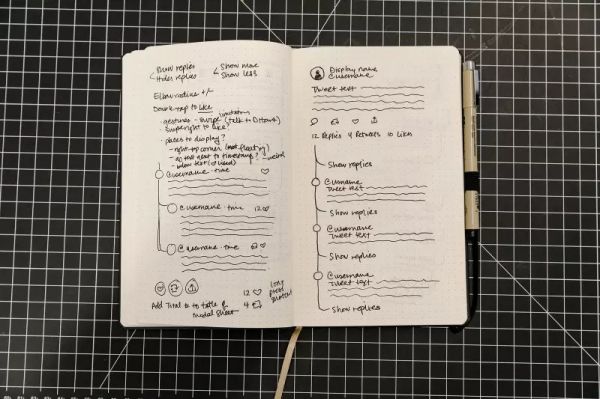 Show replies
Hides replies
Show more
Show less
Elbow-radius +/-
Double-tap to like
- gestures - swipe (talk to Dtown)
swipe right to like?
- places to display?
- right-top corner (not floating)
- below text (if liked)
@username · time
@username · time 12
@username · time
12
4
long
press
Add Total to table of
modal sheet
Display name
@username
Tweet text
12 Replies 4 Retweets 10 Likes
Show replies
@username
Tweet text
Show replies
@username
Tweet text
Show replies
@username
Tweet text
Show replies